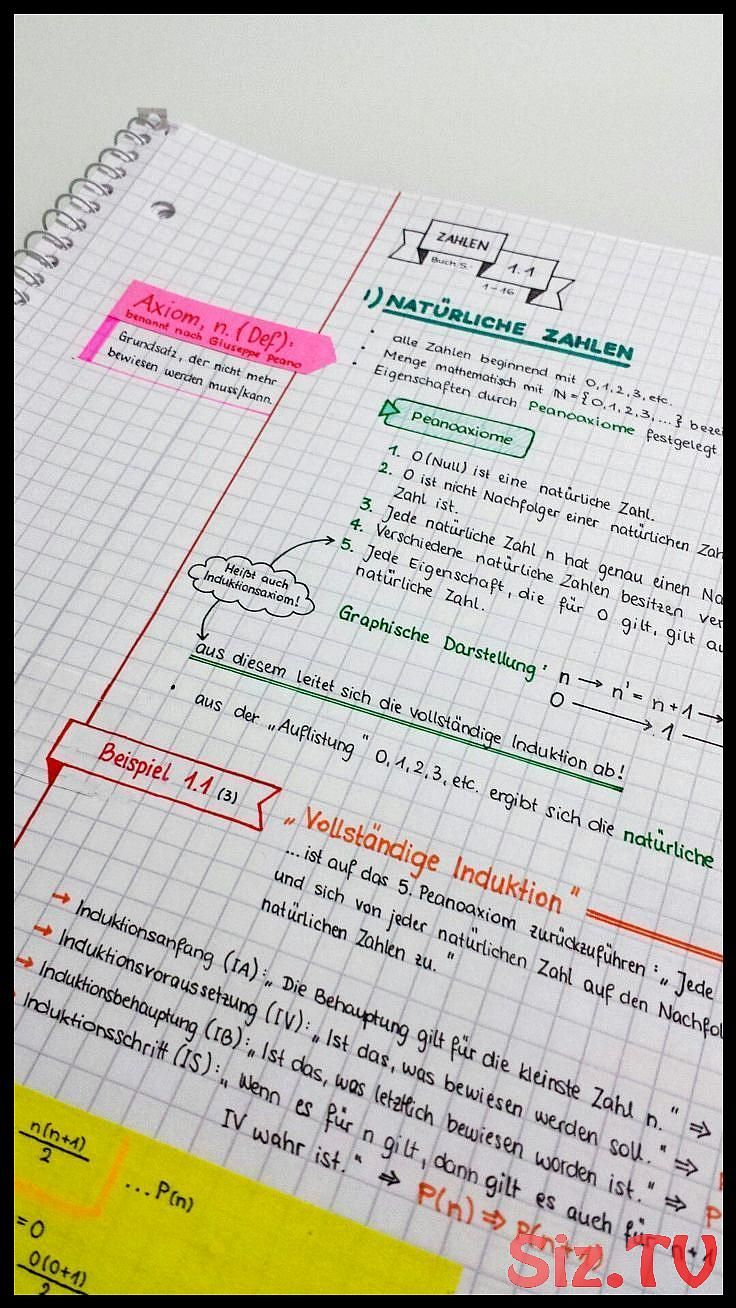 ZAHLEN
Buch S.
1.1
1-16
Axiom, n. (Def):
benannt nach Giuseppe Peano
Grundsatz, der nicht mehr
bewiesen werden muss/kann.
1) NATÜRLICHE ZAHLEN
• alle Zahlen beginnend mit 0,1,2,3, etc.
• Menge mathematisch mit ℕ = {0,1,2,3,...} bezei
• Eigenschaften durch Peanoaxiome festgelegt
Peanoaxiome
1. 0 (Null) ist eine natürliche Zahl.
2. 0 ist nicht Nachfolger einer natürlichen Zah
Zahl ist.
3. Jede natürliche Zahl n hat genau einen Na
4. Verschiedene natürliche Zahlen besitzen ver
5. Jede Eigenschaft, die für 0 gilt, gilt au
natürliche Zahl.
Heißt auch
Induktionsaxiom!
Graphische Darstellung: n → n' = n+1 →
0 → 1
aus diesem leitet sich die vollständige Induktion ab!
• aus der „Auflistung" 0,1,2,3, etc. ergibt sich die natürliche
Beispiel 1.1 (3)
„Vollständige Induktion"
...ist auf das 5. Peanoaxiom zurückzuführen: „Jede
und sich von jeder natürlichen Zahl auf den Nachfol
natürlichen Zahlen zu."
→ Induktionsanfang (IA): „Die Behauptung gilt für die kleinste Zahl n." ⇒
→ Induktionsvoraussetzung (IV): „Ist das, was bewiesen werden soll." ⇒
→ Induktionsbehauptung (IB): „Ist das, was letztlich bewiesen worden ist." ⇒ P
Induktionsschritt (IS): „Wenn es für n gilt, dann gilt es auch für n+1
IV wahr ist." ⇒ P(n) ⇒ P(n+1)
n(n+1)
2
...P(n)
=0
0(0+1)
2
Siz.TV